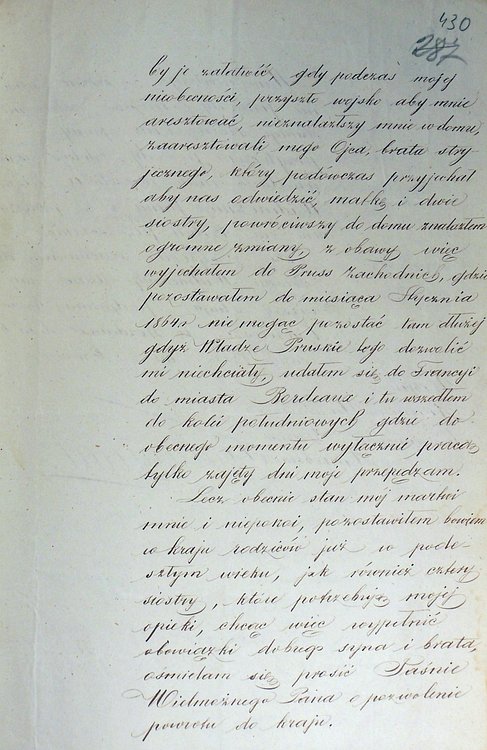 430
287
by je załatwić, gdy podczas mojej
nieobecności, przyszło wojsko aby mnie
aresztować, nieznalazłszy mnie w domu,
zaaresztowali mego Ojca, brata stry-
jecznego, który podówczas przyjechał
aby nas odwiedzić, matkę i dwie
siostry, powróciwszy do domu znalazłem
ogromne zmiany, z obawy więc
wyjechałem do Pruss Zachodnich, gdzie
pozostawałem do miesiąca Stycznia
1864 r nie mogąc pozostać tam dłużej
gdyż Władze Pruskie tego dozwolić
mi niechciały, udałem się do Francyi
do miasta Bordeaux i tu wszedłem
do kolei południowych gdzie do
obecnego momentu wyłącznie pracą
tylko zajęty dni moje przepędzam.
Lecz obecnie stan mój martwi
mnie i niepokoi, pozostawiłem bowiem
w kraju rodziców już w pode-
szłym wieku, jak również cztery
siostry, które potrzebują mojej
opieki, chcąc więc wypełnić
obowiązki dobrego syna i brata,
ośmielam się prosić Jaśnie
Wielmożnego Pana o pozwolenie
powrotu do kraju.